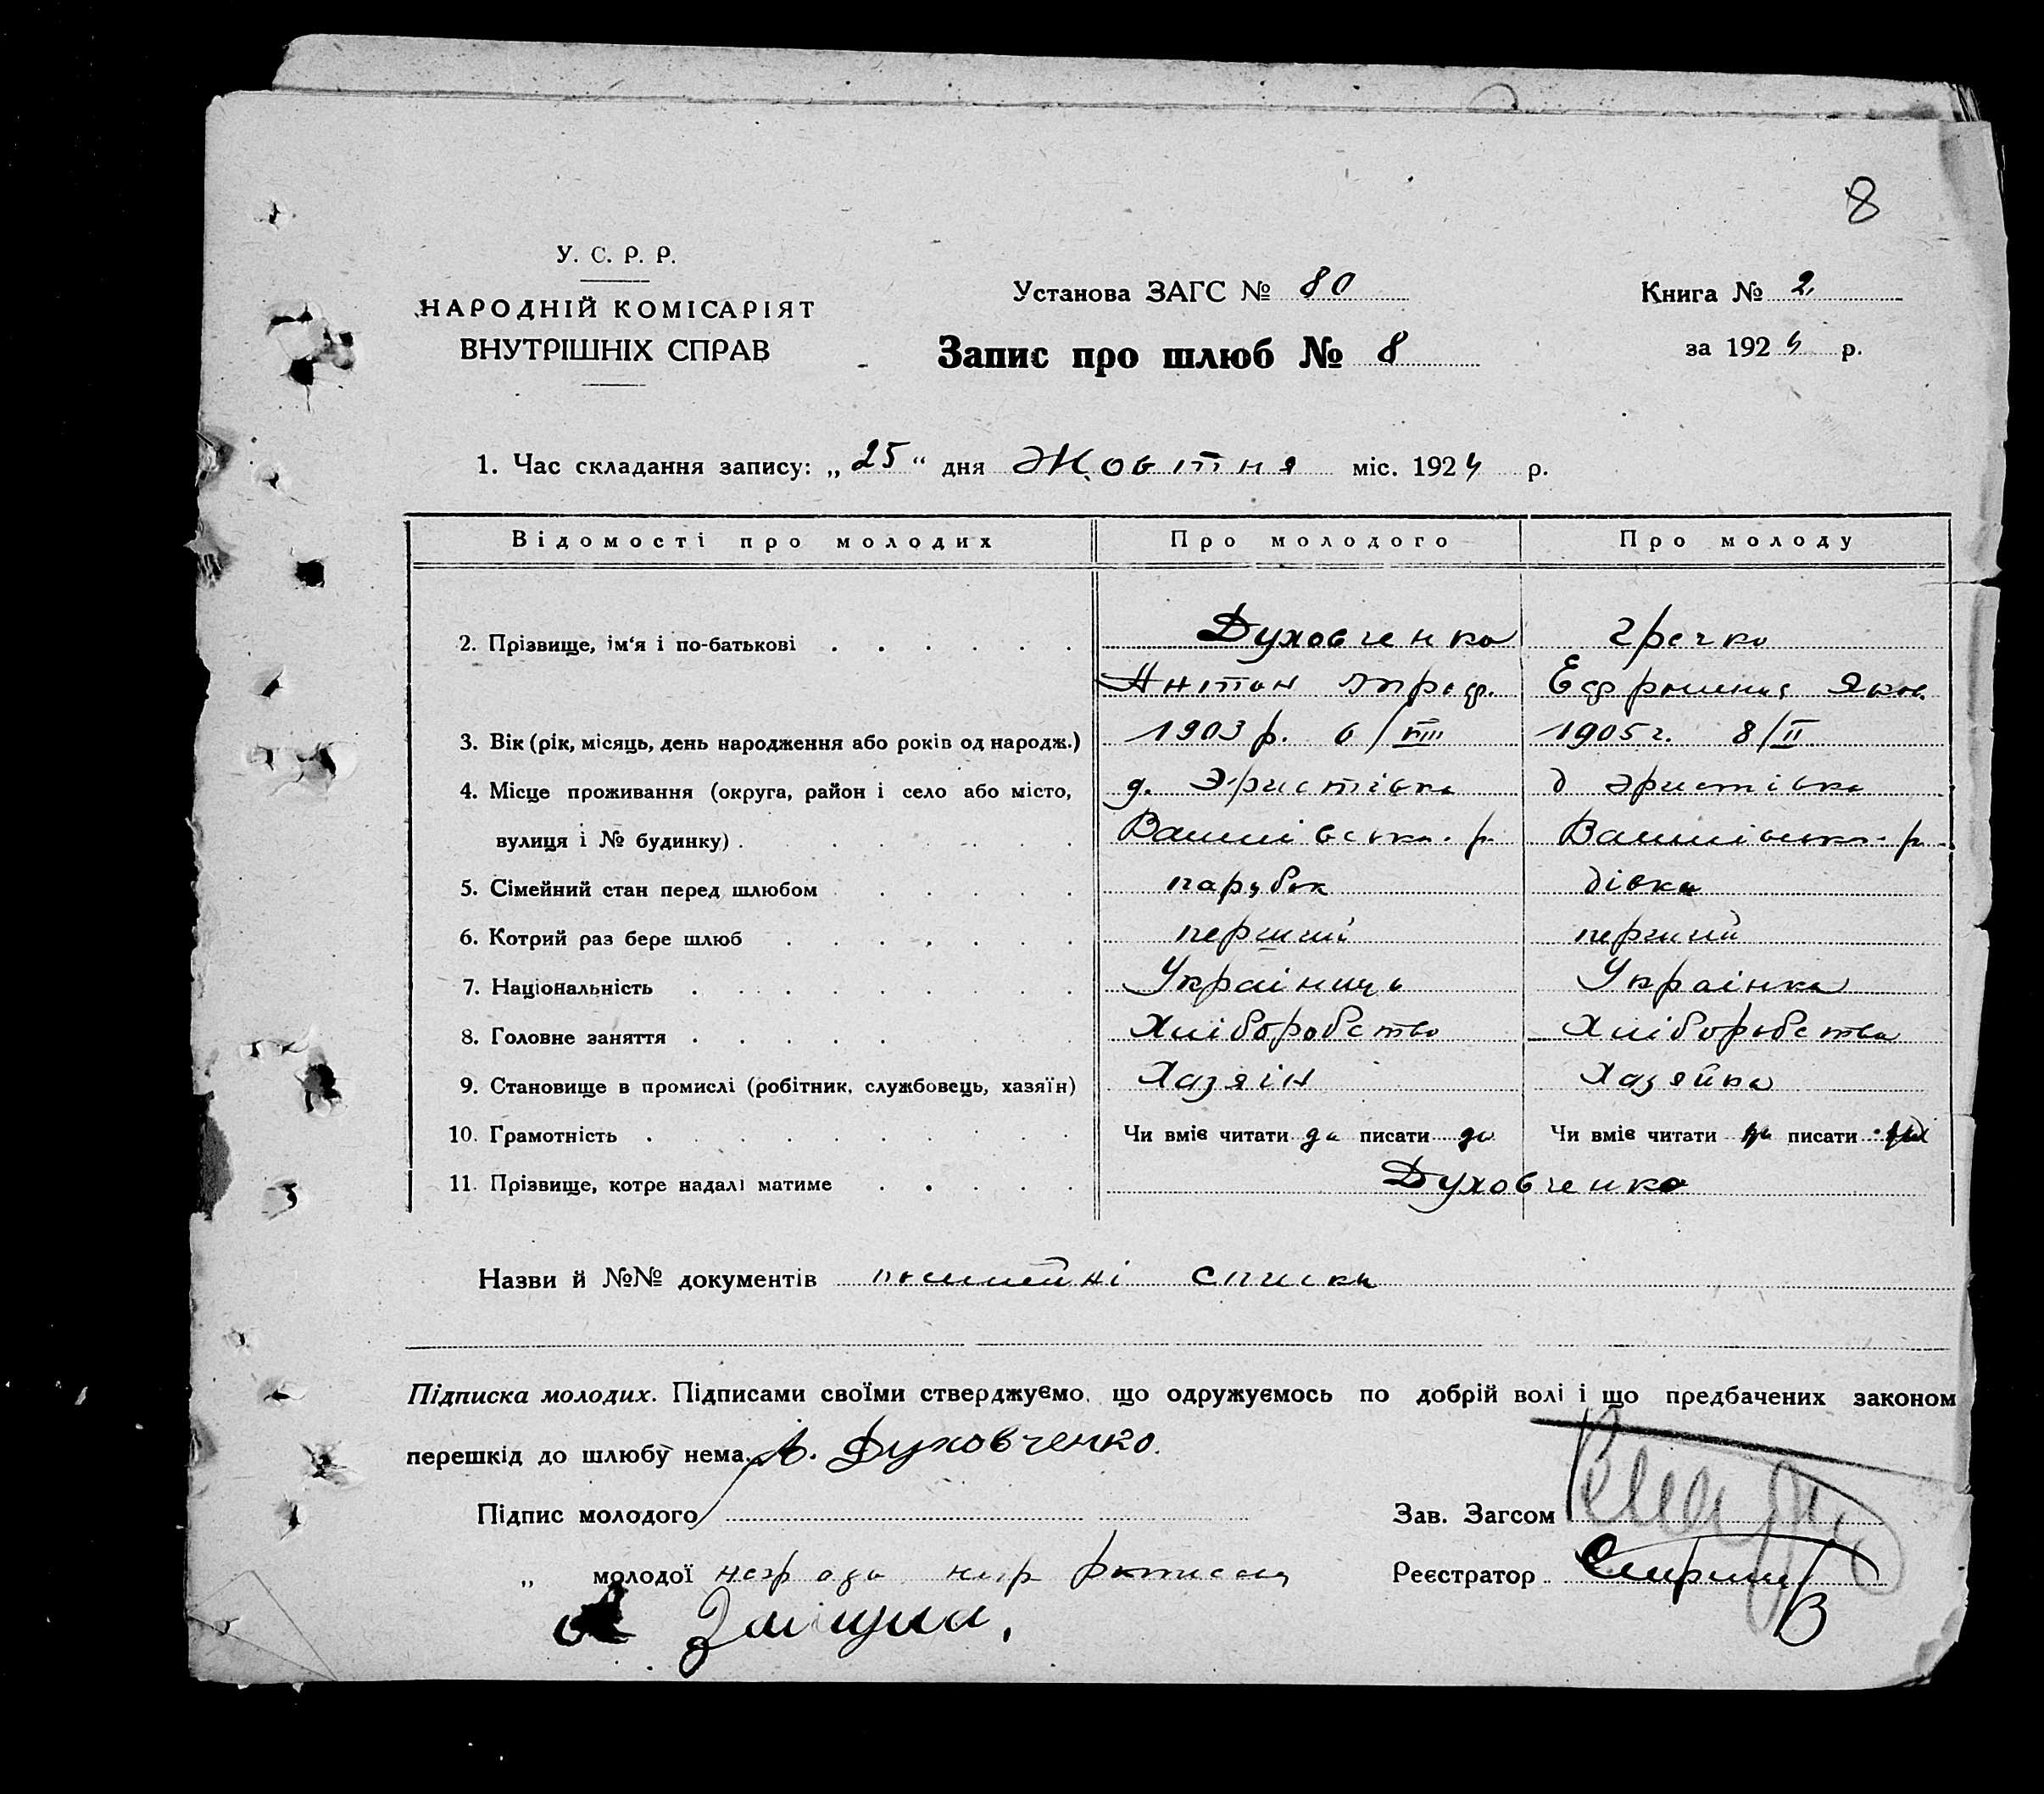 8
У. С. Р. Р.
НАРОДНІЙ КОМІСАРІЯТ
ВНУТРІШНІХ СПРАВ
Установа ЗАГС № 80
Запис про шлюб № 8
Книга № 2
за 1924 р.
1. Час складання запису: „ 25 “ дня Жовтня міс. 1924 р.
Відомості про молодих Про молодого Про молоду
2. Прізвище, ім'я і по-батькові Духовченко Гречко
Антон Ефросинія Яков.
3. Вік (рік, місяць, день народження або років од народж.) 1903 р. 6/VIII 1905 г. 8/II
4. Місце проживання (округа, район і село або місто, д. Эристівка д Эристівка
вулиця і № будинку)
5. Сімейний стан перед шлюбом парубок дівка
6. Котрий раз бере шлюб перший перший
7. Національність Украіниць Украінка
8. Головне заняття Хліборобство Хліборобства
9. Становище в промислі (робітник, службовець, хазяїн) Хазяін Хазяйка
10. Грамотність Чи вміє читати да писати да Чи вміє читати писати
11. Прізвище, котре надалі матиме Духовченко
Назви й №№ документів посімейні списки
Підписка молодих. Підписами своїми стверджуємо, що одружуємось по добрій волі і що предбачених законом
перешкід до шлюбу нема. А. Духовченко.
Підпис молодого Зав. Загсом
„ молодої Реєстратор